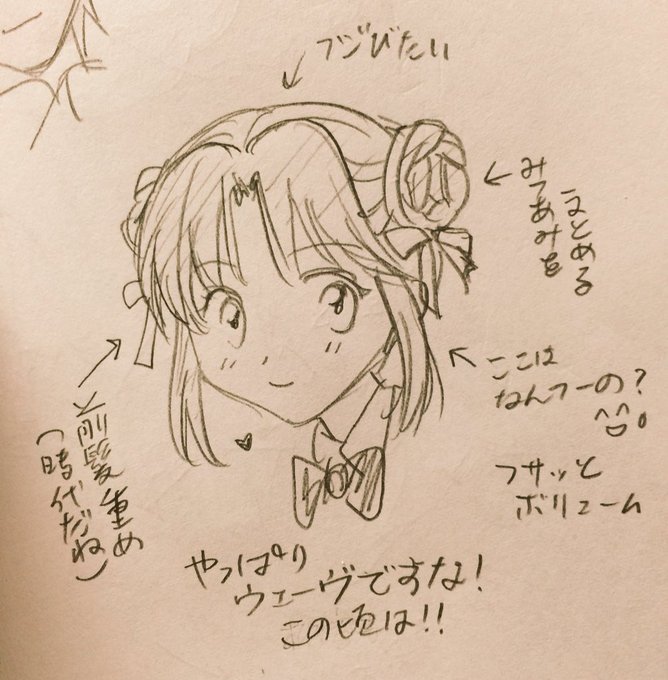 フジびたい
みつあみを
まとめる
ここは
なんつーの？
フサッと
ボリューム
前髪重め
(時代だね)
やっぱり
ウェーヴですな!
この頃は!!